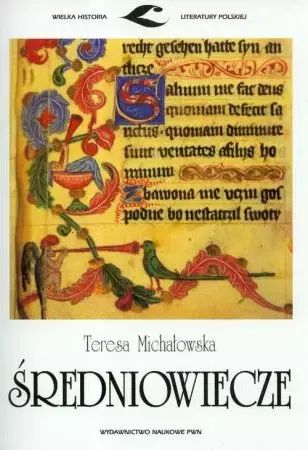 WIELKA HISTORIA LITERATURY POLSKIEJ
recht gesehen hatte syn an
tlicze
Saluum me fac deus
quoniam defecit sa
nctus · quoniam diminute
sunt veritates afilys ho
minum
Zbawona me vczin gos
podne bo nestatczal swoty
Teresa Michałowska
ŚREDNIOWIECZE
WYDAWNICTWO NAUKOWE PWN